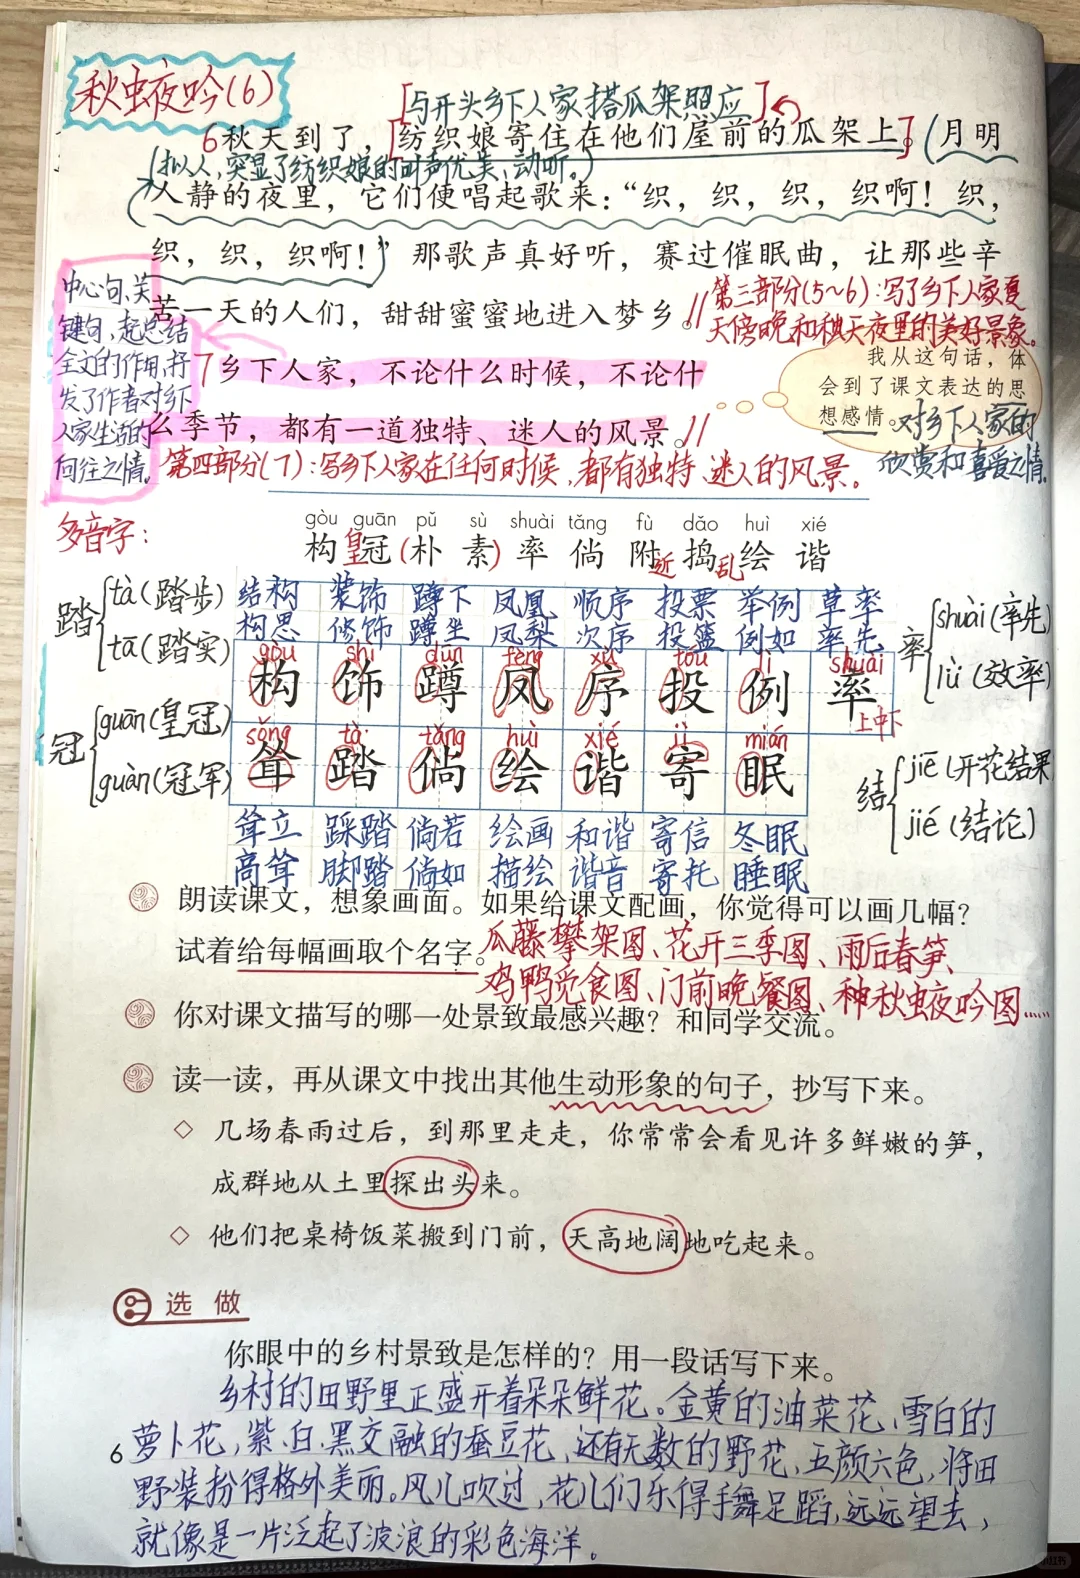 秋虫夜吟(6)
[与开头乡下人家搭瓜架照应]
6秋天到了，[纺织娘寄住在他们屋前的瓜架上。](月明
(拟人，突显了纺织娘的叫声优美、动听。)
人静的夜里，它们便唱起歌来：“织，织，织，织啊！织，
织，织，织啊！”)那歌声真好听，赛过催眠曲，让那些辛
苦一天的人们，甜甜蜜蜜地进入梦乡。//
第三部分(5~6)：写了乡下人家夏
天傍晚和秋天夜里的美好景象。
中心句、关
键句，起总结
全文的作用，抒
发了作者对乡下
人家生活的
向往之情。
7乡下人家，不论什么时候，不论什
么季节，都有一道独特、迷人的风景。//
我从这句话，体
会到了课文表达的思
想感情。
对乡下人家的
欣赏和喜爱之情。
第四部分(7)：写乡下人家在任何时候，都有独特、迷人的风景。
多音字：
gòu guān pǔ sù shuài tǎng fù dǎo huì xié
构 皇冠 (朴 素) 率 倘 附近 捣乱 绘 谐
踏 tà(踏步) tā(踏实)
冠 guān(皇冠) guàn(冠军)
结构 装饰 蹲下 凤凰 顺序 投票 举例 草率
构思 修饰 蹲坐 凤梨 次序 投篮 例如 率先
gòu shì dūn fèng xù tóu lì shuài
构 饰 蹲 凤 序 投 例 率
上中下
sǒng tà tǎng huì xié jì mián
耸 踏 倘 绘 谐 寄 眠
耸立 踩踏 倘若 绘画 和谐 寄信 冬眠
高耸 脚踏 倘如 描绘 谐音 寄托 睡眠
率 shuài(率先) lǜ(效率)
结 jiē(开花结果 jié(结论)
朗读课文，想象画面。如果给课文配画，你觉得可以画几幅？
试着给每幅画取个名字。瓜藤攀架图、花开三季图、雨后春笋、
鸡鸭觅食图、门前晚餐图、种秋虫夜吟图……
你对课文描写的哪一处景致最感兴趣？和同学交流。
读一读，再从课文中找出其他生动形象的句子，抄写下来。
◇ 几场春雨过后，到那里走走，你常常会看见许多鲜嫩的笋，
成群地从土里探出头来。
◇ 他们把桌椅饭菜搬到门前，天高地阔地吃起来。
选做
你眼中的乡村景致是怎样的？用一段话写下来。
乡村的田野里正盛开着朵朵鲜花。金黄的油菜花、雪白的
萝卜花，紫、白、黑交融的蚕豆花、还有无数的野花，五颜六色，将田
野装扮得格外美丽。风儿吹过，花儿们乐得手舞足蹈，远远望去，
就像是一片泛起了波浪的彩色海洋。
6